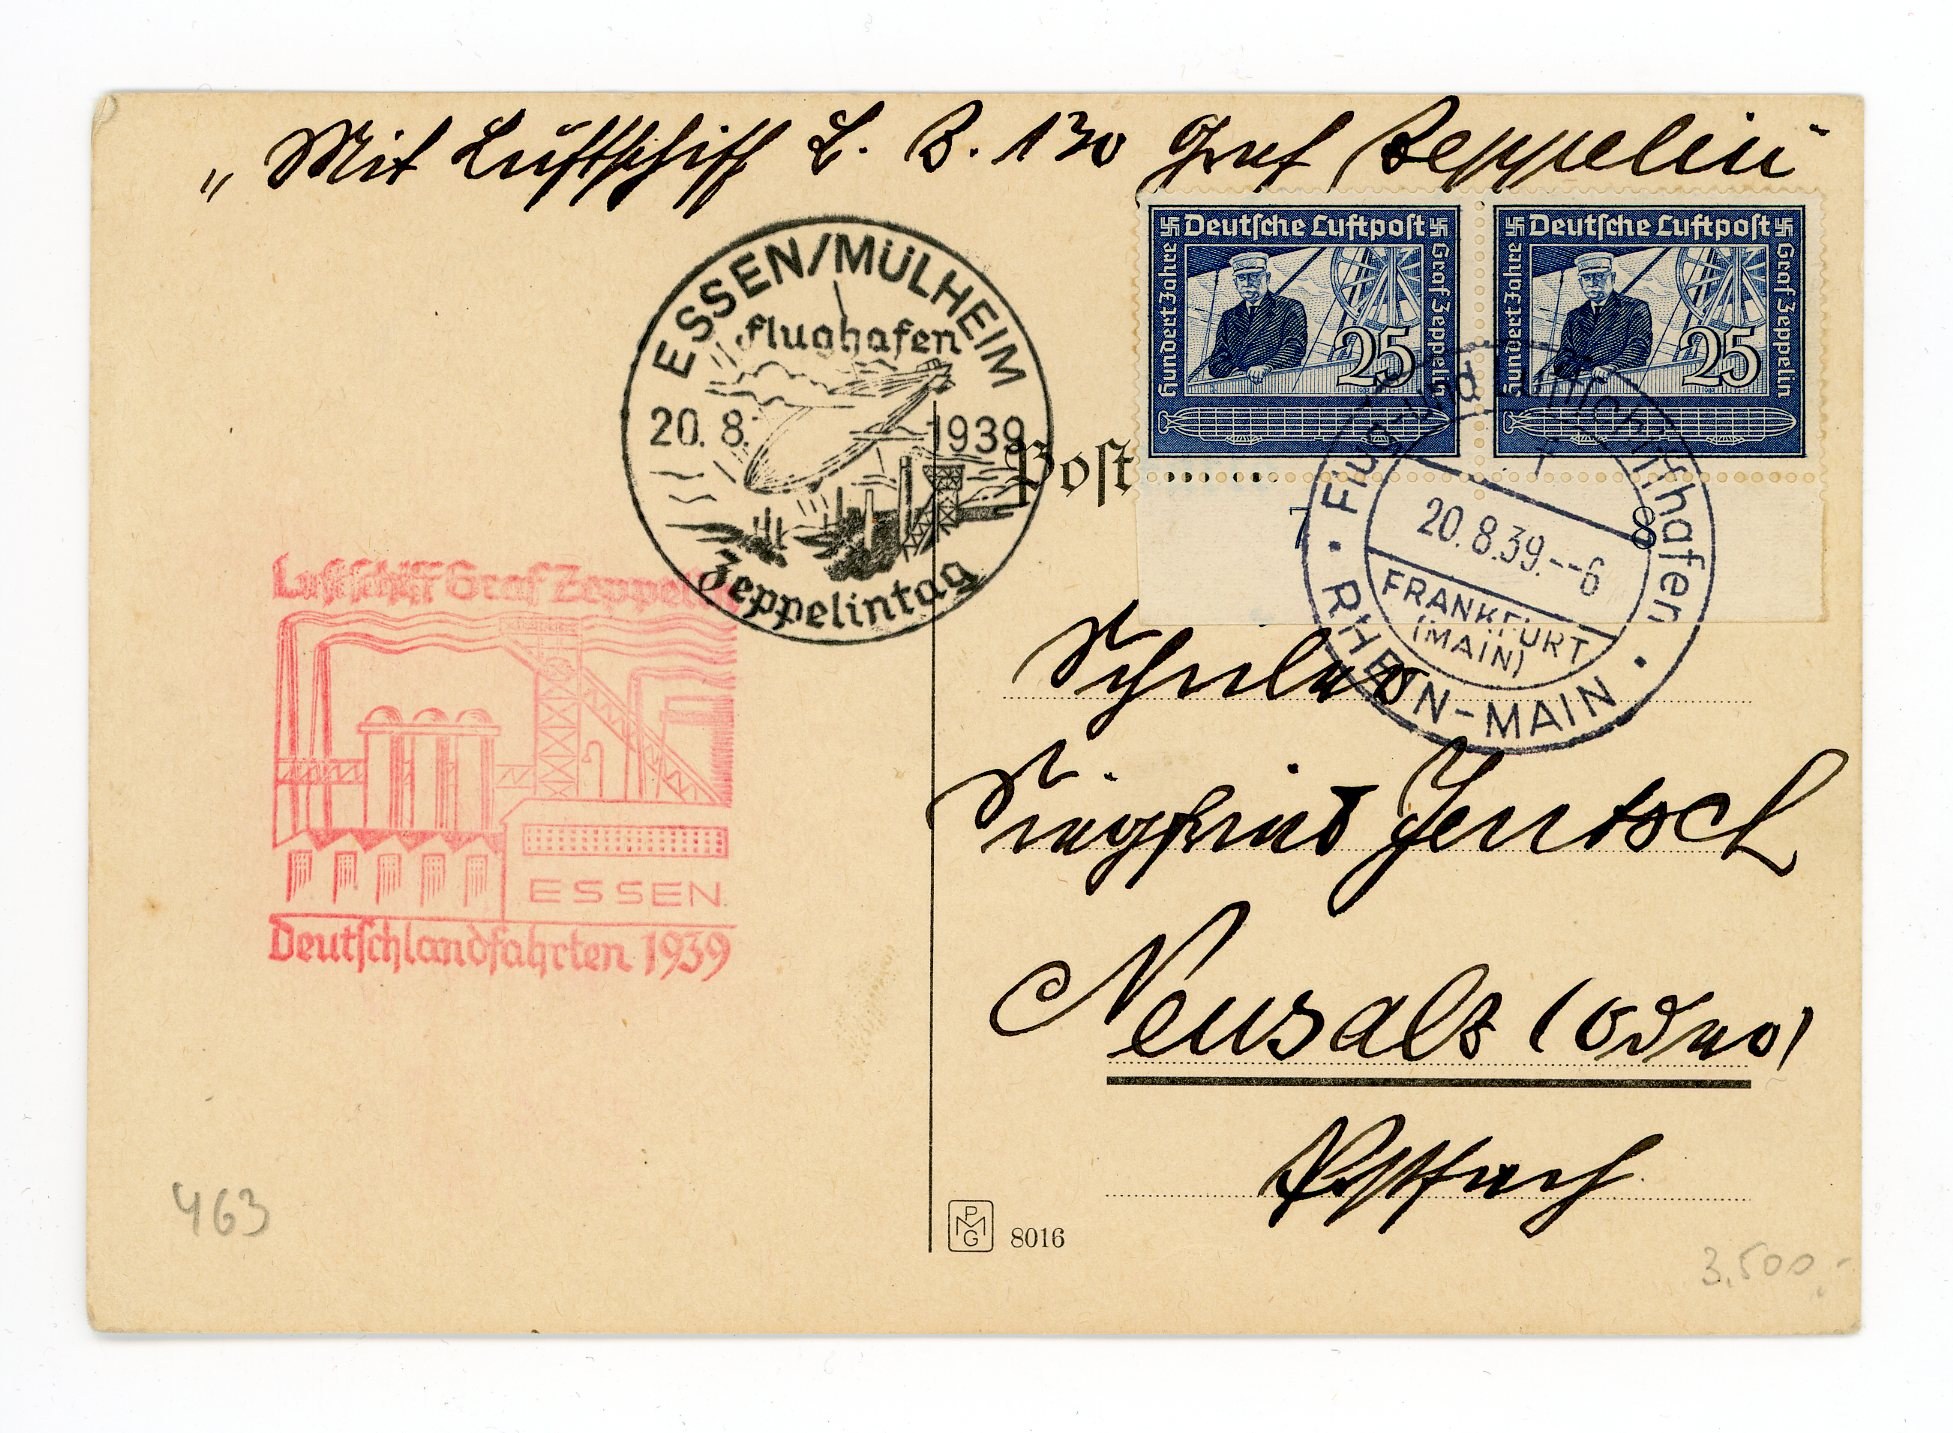 „Mit Luftschiff L. Z. 130 Graf Zeppelin"
Deutsche Luftpost
Hundert Jahre
Graf Zeppelin
25
Deutsche Luftpost
Hundert Jahre
Graf Zeppelin
25
7
8
ESSEN/MÜLHEIM
flughafen
20. 8. 1939
Zeppelintag
Postkarte
Flug- und Luftschiffhafen
20.8.39.--6
FRANKFURT
(MAIN)
RHEIN-MAIN
Luftschiff Graf Zeppelin
ESSEN.
Deutschlandfahrten 1939
Schüler
Siegfried Jentsch
Neusalz (Oder)
Postfach
463
PMG 8016
3.500,-